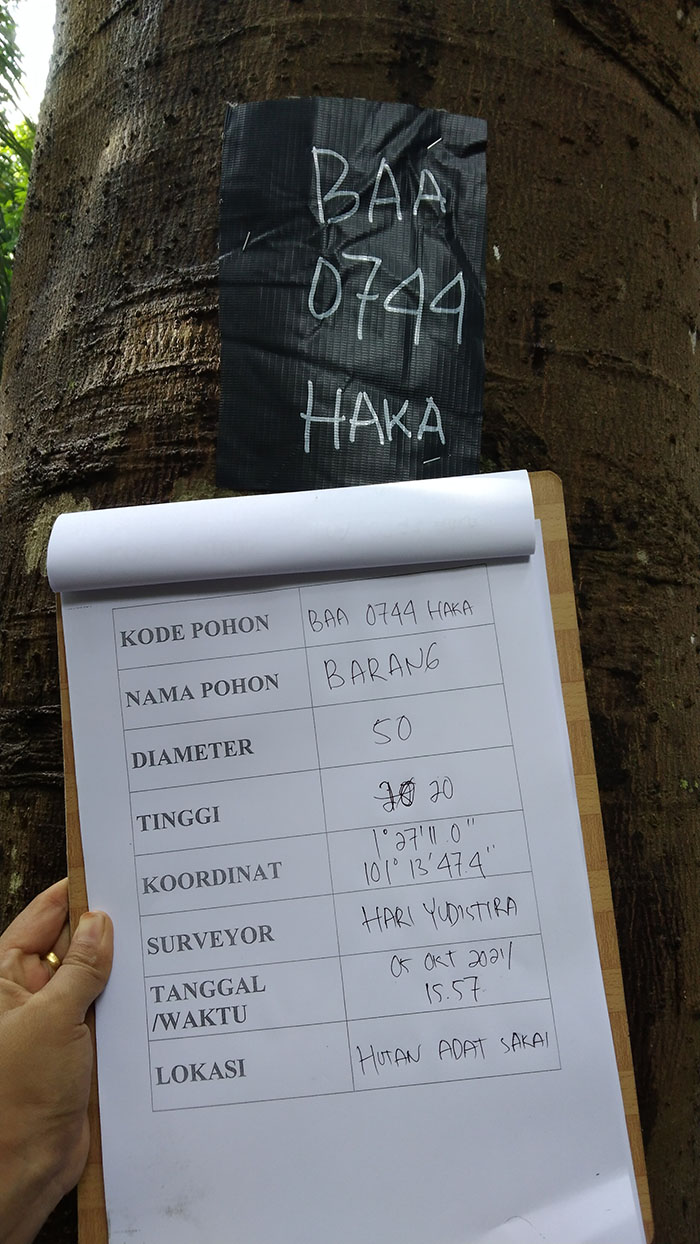 BAA
0744
HAKA
KODE POHON BAA 0744 HAKA
NAMA POHON BARANG
DIAMETER 50
TINGGI 20
KOORDINAT 1°27'11.0"
101°13'47.4"
SURVEYOR HARI YUDISTIRA
TANGGAL 05 OKT 2021/
/WAKTU 15.57
LOKASI HUTAN ADAT SAKAI